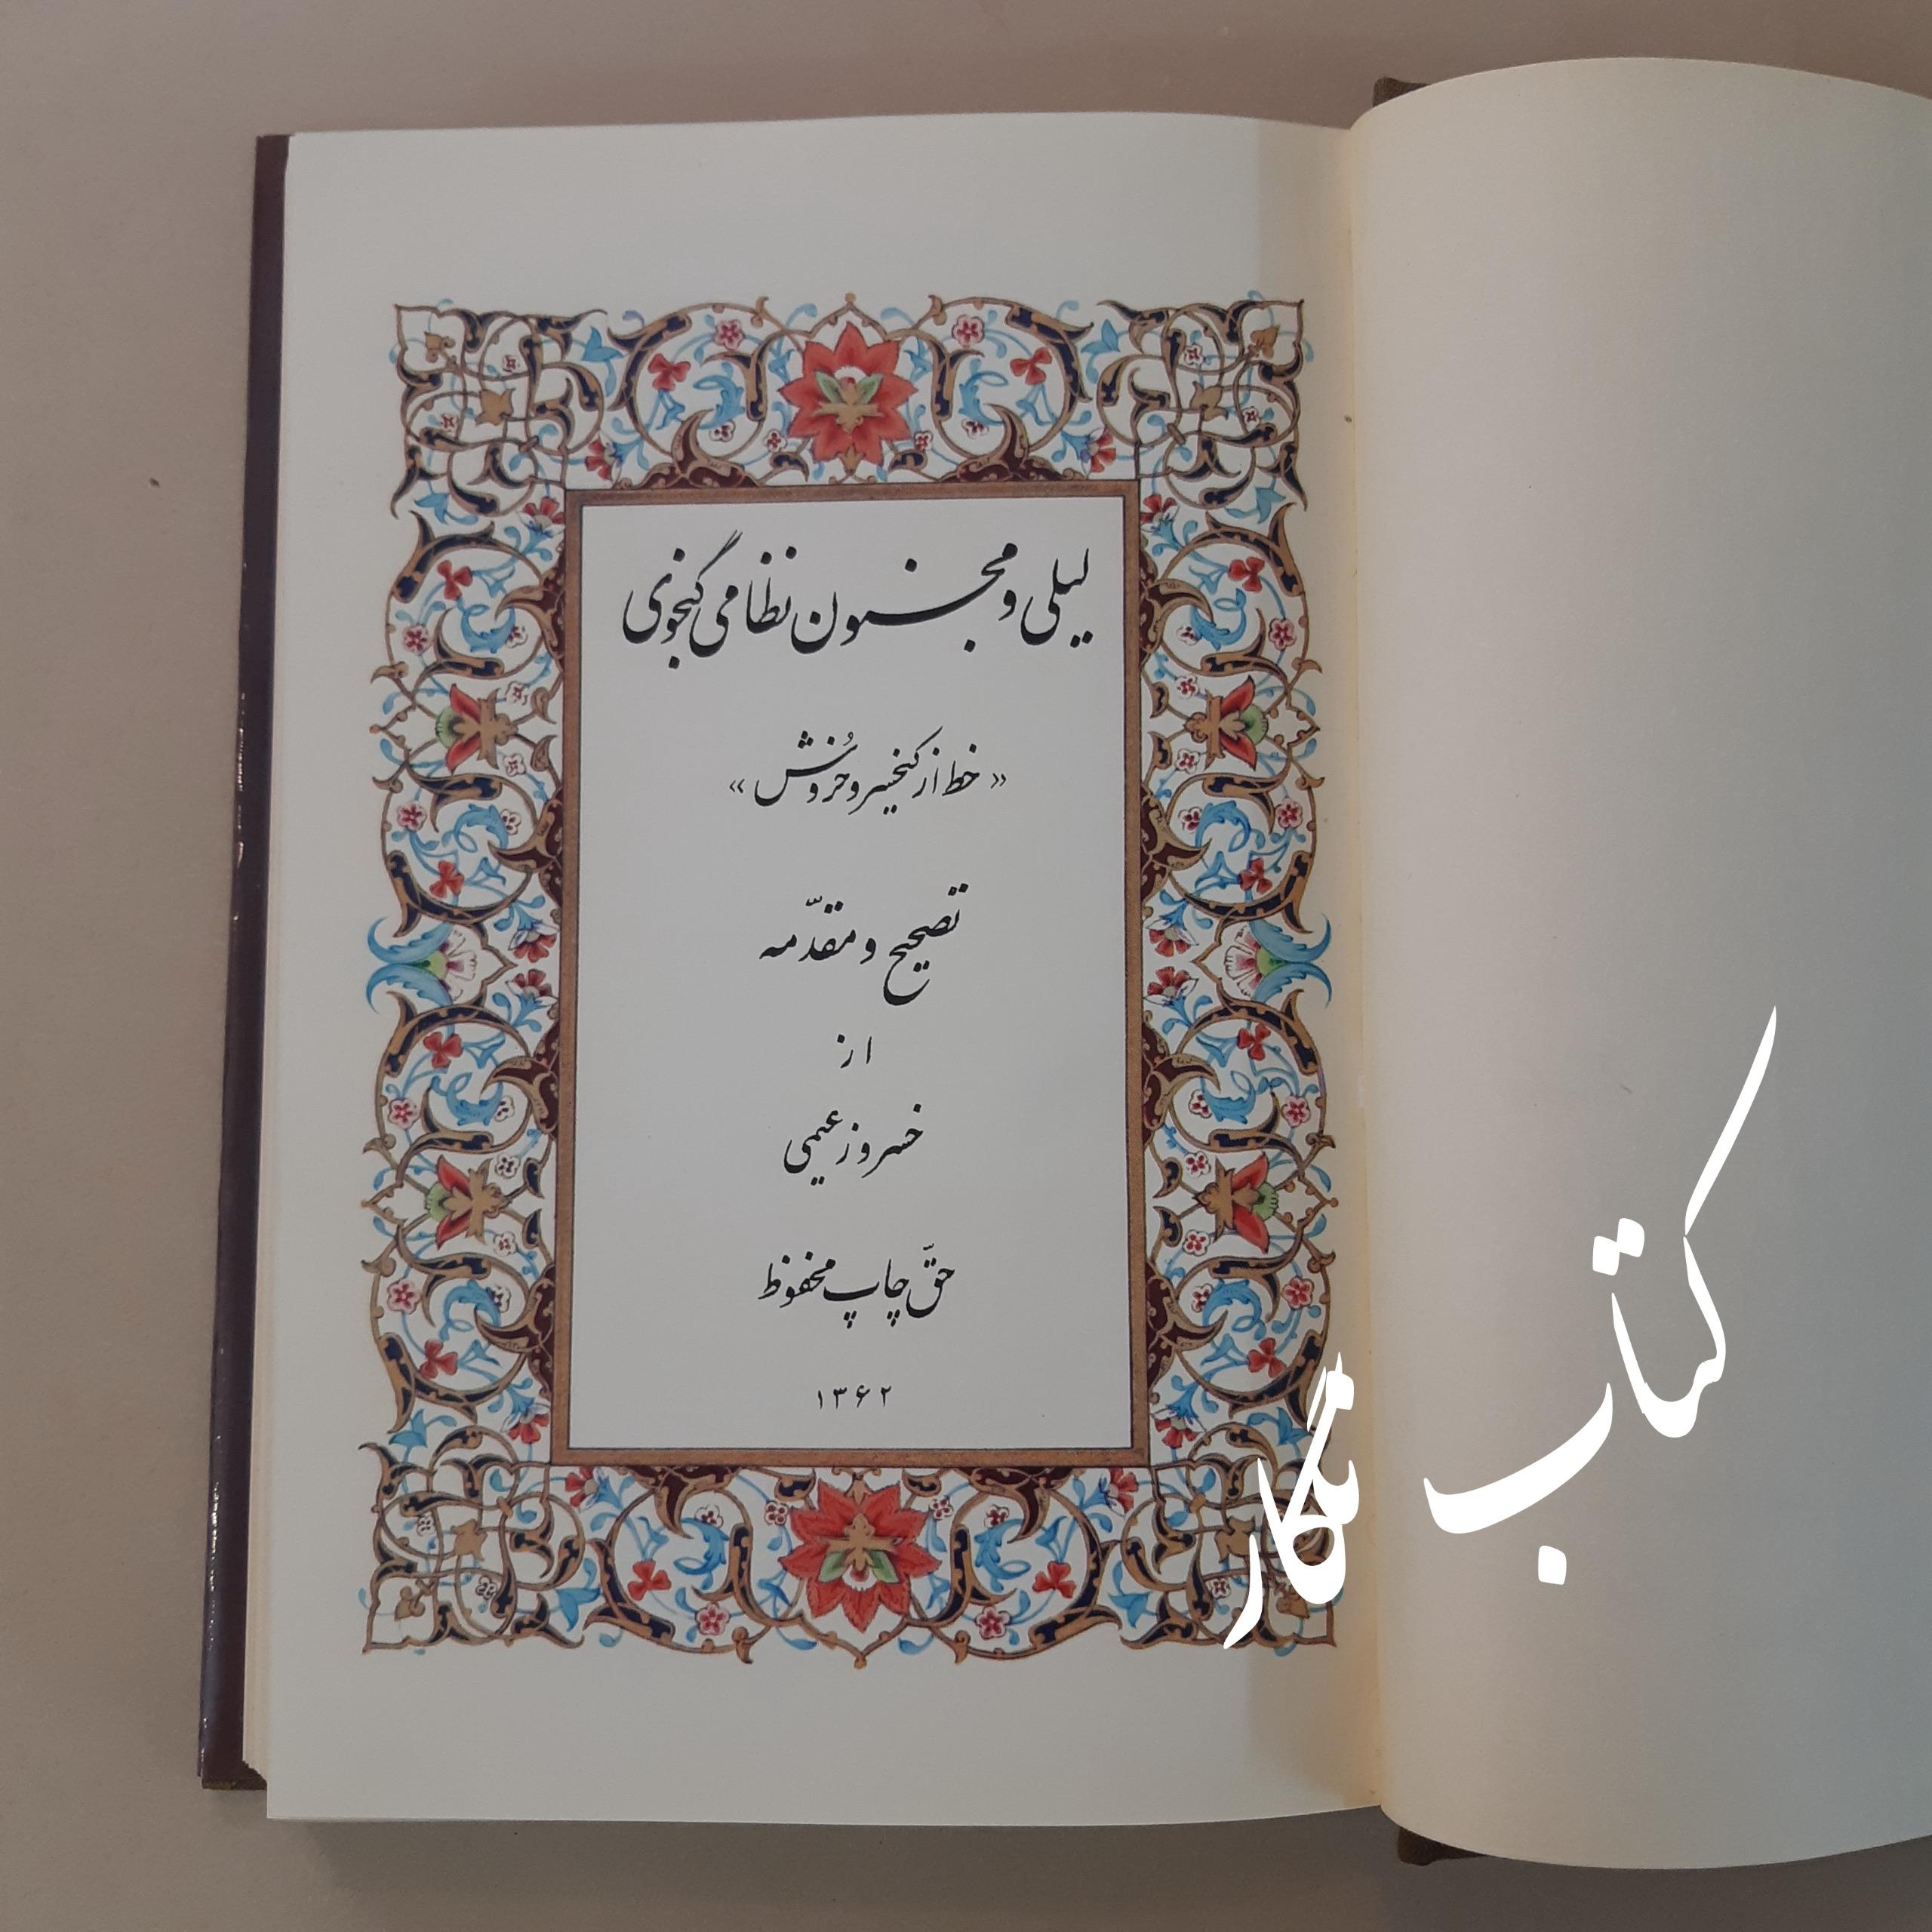 لیلی و مجنون نظامی گنجوی
« خط از کیخسرو خروش »
تصحیح و مقدّمه
از
خسرو زعیمی
حقّ چاپ محفوظ
۱۳۶۲
کتاب نگار